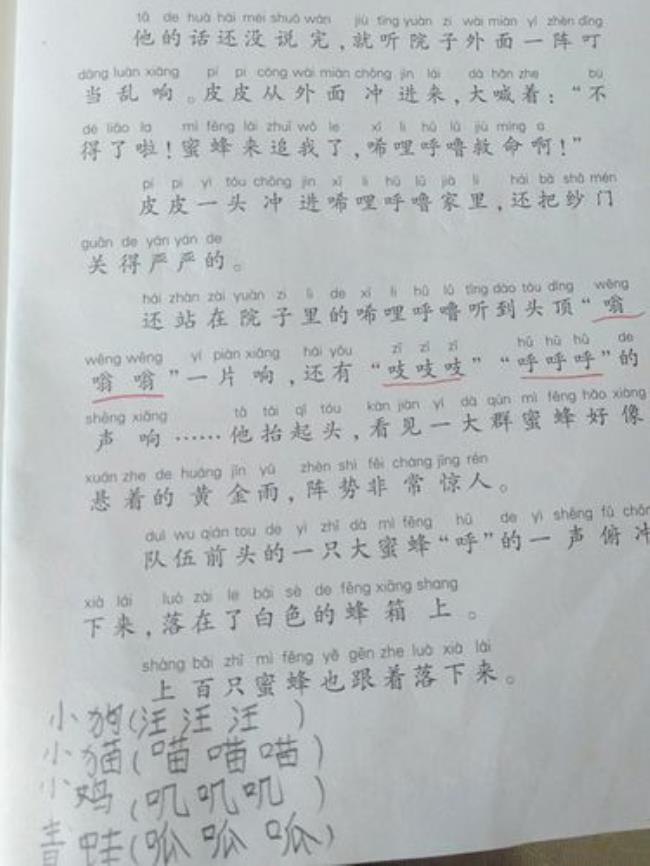 tā de huà hái méi shuō wán jiù tīng yuàn zi wài miàn yí zhèn dīng
他的话还没说完,就听院子外面一阵叮
dāng luàn xiǎng pí pi cóng wài miàn chōng jìn lái dà hǎn zhe bù
当乱响。皮皮从外面冲进来,大喊着:“不
dé liǎo la mì fēng lái zhuī wǒ le xī li hū lū jiù mìng a
得了啦!蜜蜂来追我了,唏哩呼噜救命啊!”
pí pi yì tóu chōng jìn xī li hū lū jiā li hái bǎ shā mén
皮皮一头冲进唏哩呼噜家里,还把纱门
guān de yán yán de
关得严严的。
hái zhàn zài yuàn zi li de xī li hū lū tīng dào tóu dǐng wēng
还站在院子里的唏哩呼噜听到头顶“嗡
wēng wēng yí piàn xiǎng hái yǒu zī zī zī hū hū hū de
嗡嗡”一片响,还有“吱吱吱”“呼呼呼”的
shēng xiǎng tā tái qǐ tóu kàn jiàn yí dà qún mì fēng hǎo xiàng
声响……他抬起头,看见一大群蜜蜂好像
xuán zhe de huáng jīn yǔ zhèn shì fēi cháng jīng rén
悬着的黄金雨,阵势非常惊人。
duì wu qián tou de yì zhī dà mì fēng hū de yì shēng fǔ chōn
队伍前头的一只大蜜蜂“呼”的一声俯冲
xià lái luò zài le bái sè de fēng xiāng shang
下来,落在了白色的蜂箱上。
shàng bǎi zhī mì fēng yě gēn zhe luò xià lái
上百只蜜蜂也跟着落下来。
小狗(汪汪汪)
小猫(喵喵喵)
小鸡(叽叽叽)
青蛙(呱呱呱)